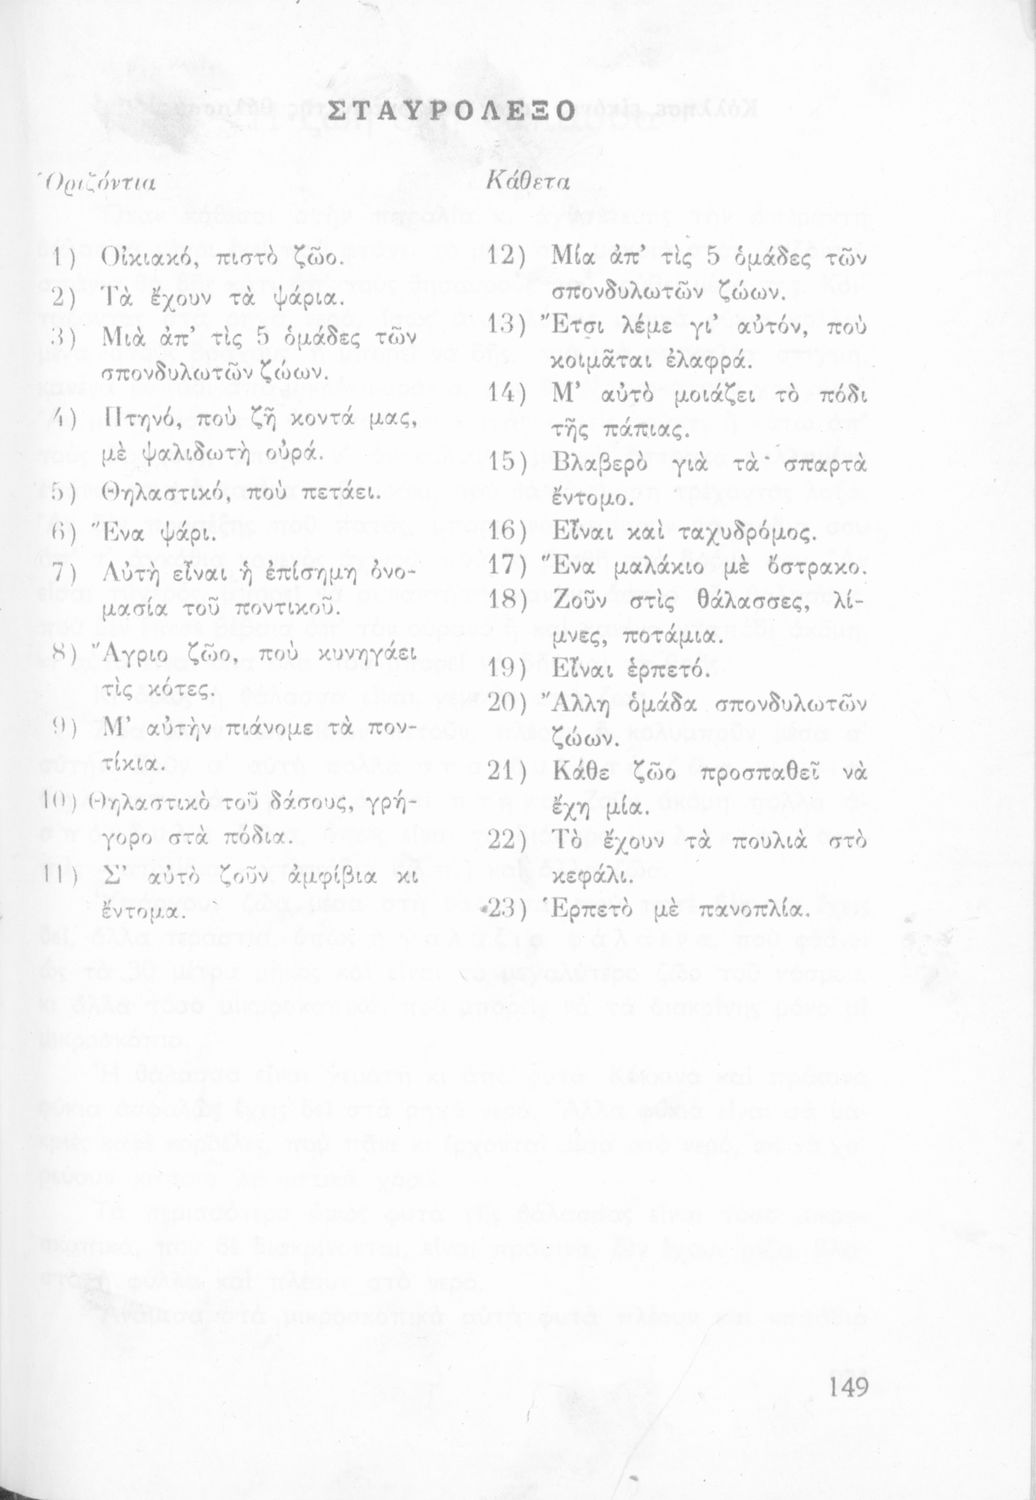 ΣΤΑΥΡΟΛΕΞΟ
Ὁριζόντια
1) Οἰκιακό, πιστὸ ζῶο.
2) Τὰ ἔχουν τὰ ψάρια.
3) Μιὰ ἀπ’ τὶς 5 ὁμάδες τῶν
σπονδυλωτῶν ζώων.
4) Πτηνό, ποὺ ζῆ κοντά μας,
μὲ ψαλιδωτὴ οὐρά.
5) Θηλαστικό, ποὺ πετάει.
6) Ἕνα ψάρι.
7) Αὐτὴ εἶναι ἡ ἐπίσημη ὀνο-
μασία τοῦ ποντικοῦ.
8) Ἄγριο ζῶο, ποὺ κυνηγάει
τὶς κότες.
9) Μ’ αὐτὴν πιάνομε τὰ πον-
τίκια.
10) Θηλαστικὸ τοῦ δάσους, γρή-
γορο στὰ πόδια.
11) Σ’ αὐτὸ ζοῦν ἀμφίβια κι
ἔντομα.
Κάθετα
12) Μία ἀπ’ τὶς 5 ὁμάδες τῶν
σπονδυλωτῶν ζώων.
13) Ἔτσι λέμε γι’ αὐτόν, ποὺ
κοιμᾶται ἐλαφρά.
14) Μ’ αὐτὸ μοιάζει τὸ πόδι
τῆς πάπιας.
15) Βλαβερὸ γιὰ τὰ σπαρτὰ
ἔντομο.
16) Εἶναι καὶ ταχυδρόμος.
17) Ἕνα μαλάκιο μὲ ὄστρακο.
18) Ζοῦν στὶς θάλασσες, λί-
μνες, ποτάμια.
19) Εἶναι ἑρπετό.
20) Ἄλλη ὁμάδα σπονδυλωτῶν
ζώων.
21) Κάθε ζῶο προσπαθεῖ νὰ
ἔχη μία.
22) Τὸ ἔχουν τὰ πουλιὰ στὸ
κεφάλι.
23) Ἑρπετὸ μὲ πανοπλία.
149